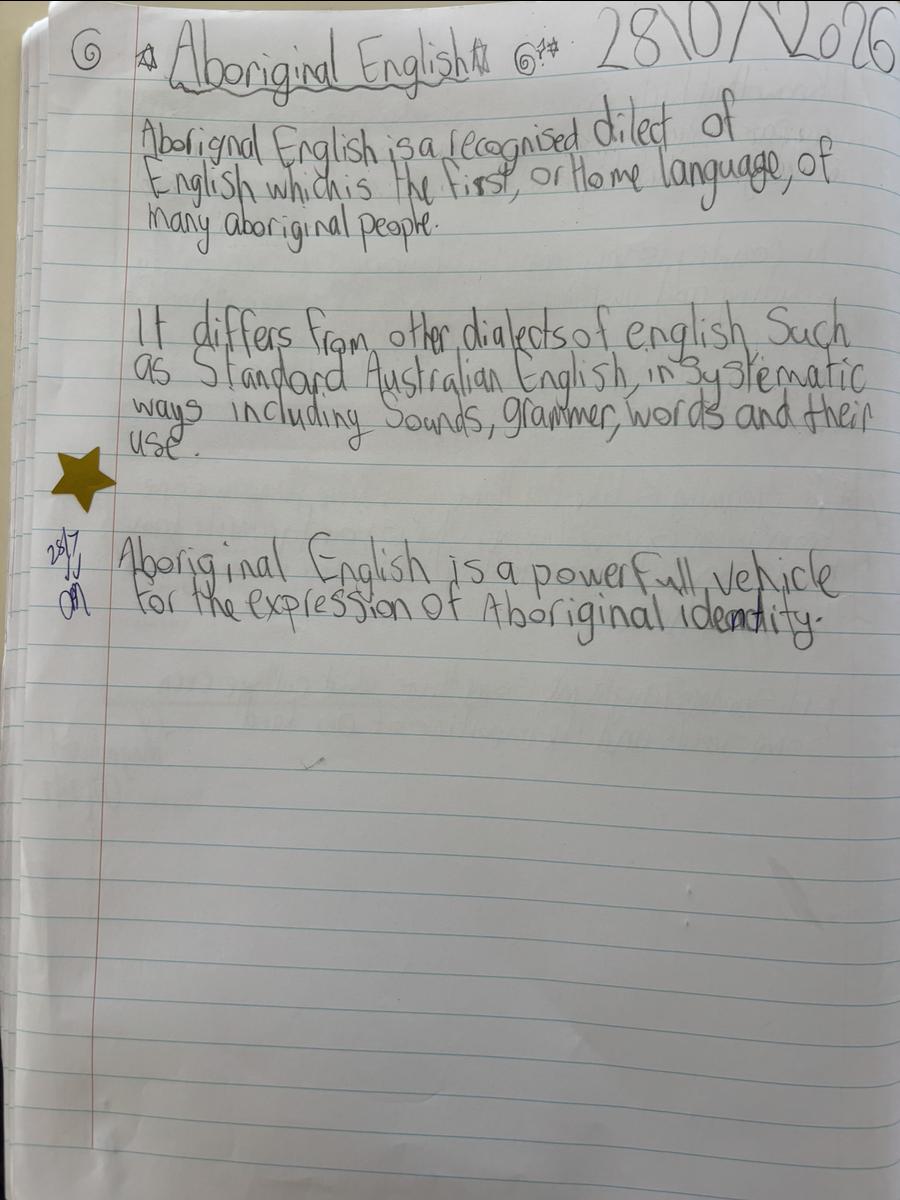 Aboriginal English 28\07\2026
Aborignal English is a recognised dilect of
English which is the first, or Home language, of
many aboriginal people.
It differs from other dialects of english such
as Standard Australian English, in Systematic
ways including Sounds, grammer, words and their
use.
28/7
Aboriginal English is a powerfull vehicle
for the expression of Aboriginal identity.